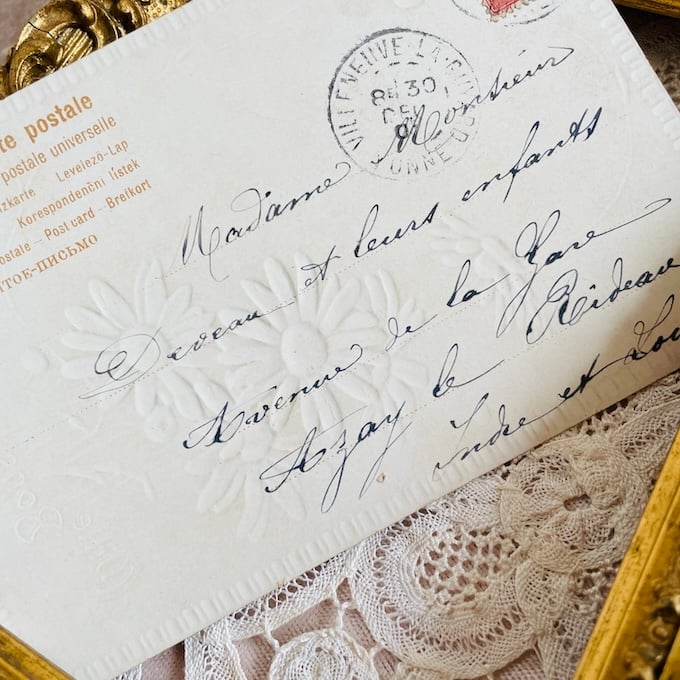 te postale
postale universelle
zkarte Levelező-Lap
Korespondenční lístek
ostale – Post card – Brefkort
ытое-письмо
VILLENEUVE-LA-GUY
8H 30
YONNE
Madame Monsieur
Deveau et leurs enfants
Avenue de la Gare
Azay le Rideau
Indre et Loi